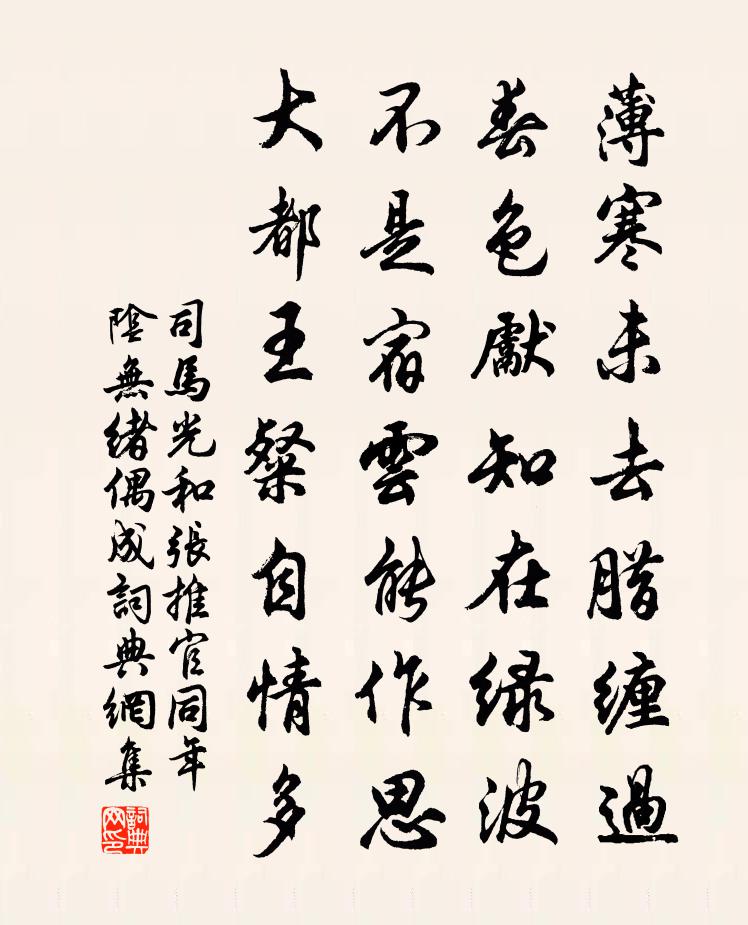 薄寒未去腊纏過
春色獻知在緑波
不是宿雲能作思
大都王粲自情多
司馬光和張推官同年
陰無緒偶成詞典網集
詞典
网印